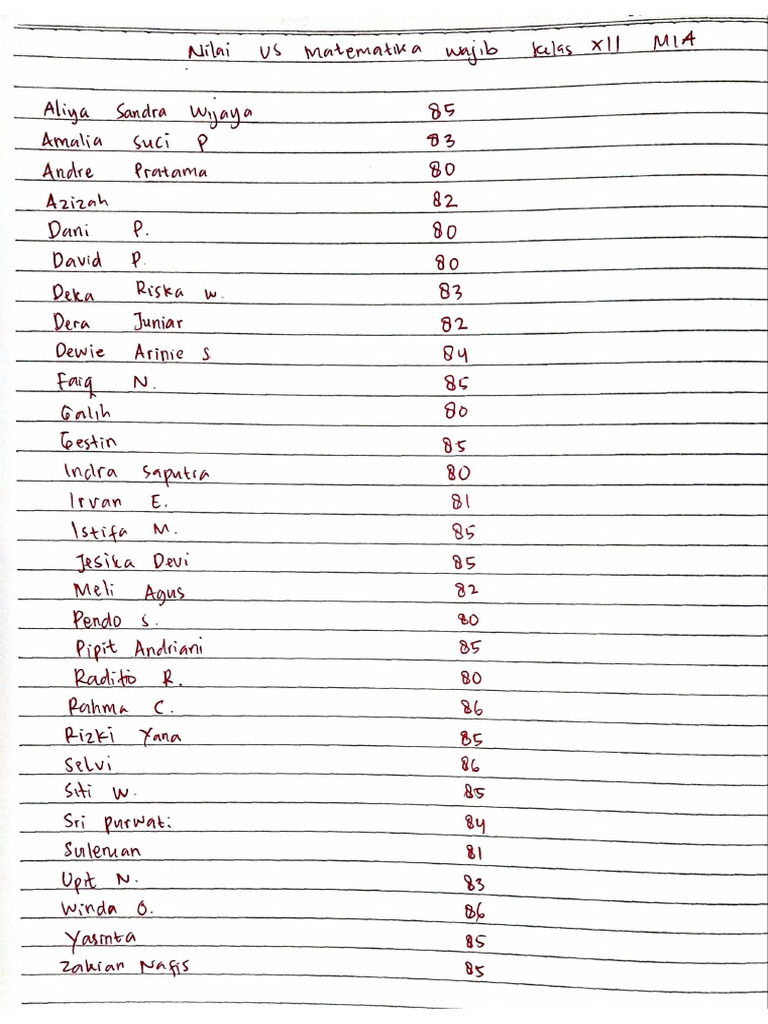 Nilai US Matematika wajib kelas XII MIA
Aliya Sandra Wijaya 85
Amalia Suci P 83
Andre Pratama 80
Azizah 82
Dani P. 80
David P. 80
Deka Riska W. 83
Dera Juniar 82
Dewie Arinie S 84
Faiq N. 85
Galih 80
Gestin 85
Indra Saputra 80
Irvan E. 81
Istifa M. 85
Jesika Devi 85
Meli Agus 82
Pendo S. 80
Pipit Andriani 85
Raditio R. 80
Rahma C. 86
Rizki Yana 85
Selvi 86
Siti W. 85
Sri Purwati 84
Suleman 81
Upit N. 83
Winda O. 86
Yasinta 85
Zakian Nafis 85